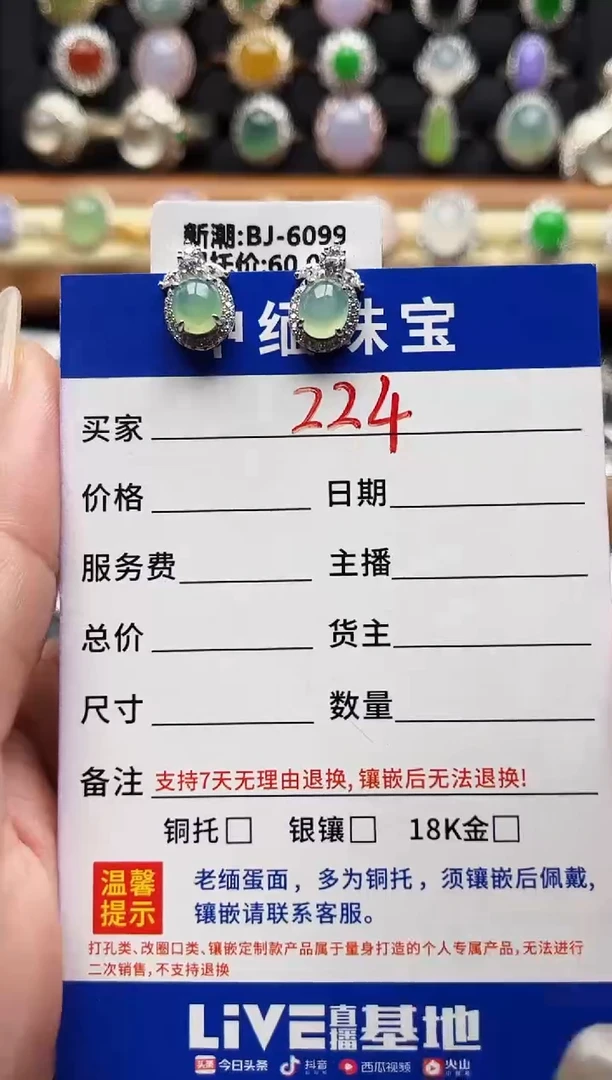 新潮:BJ-6099
托价:60.0
中缅珠宝
买家 224
价格 日期
服务费 主播
总价 货主
尺寸 数量
备注 支持7天无理由退换,镶嵌后无法退换!
铜托□ 银镶□ 18K金□
温馨提示
老缅蛋面,多为铜托,须镶嵌后佩戴,
镶嵌请联系客服。
打孔类、改圈口类、镶嵌定制款产品属于量身打造的个人专属产品,无法进行
二次销售,不支持退换
LiVE直播基地
头条 今日头条 抖音 西瓜视频 火山